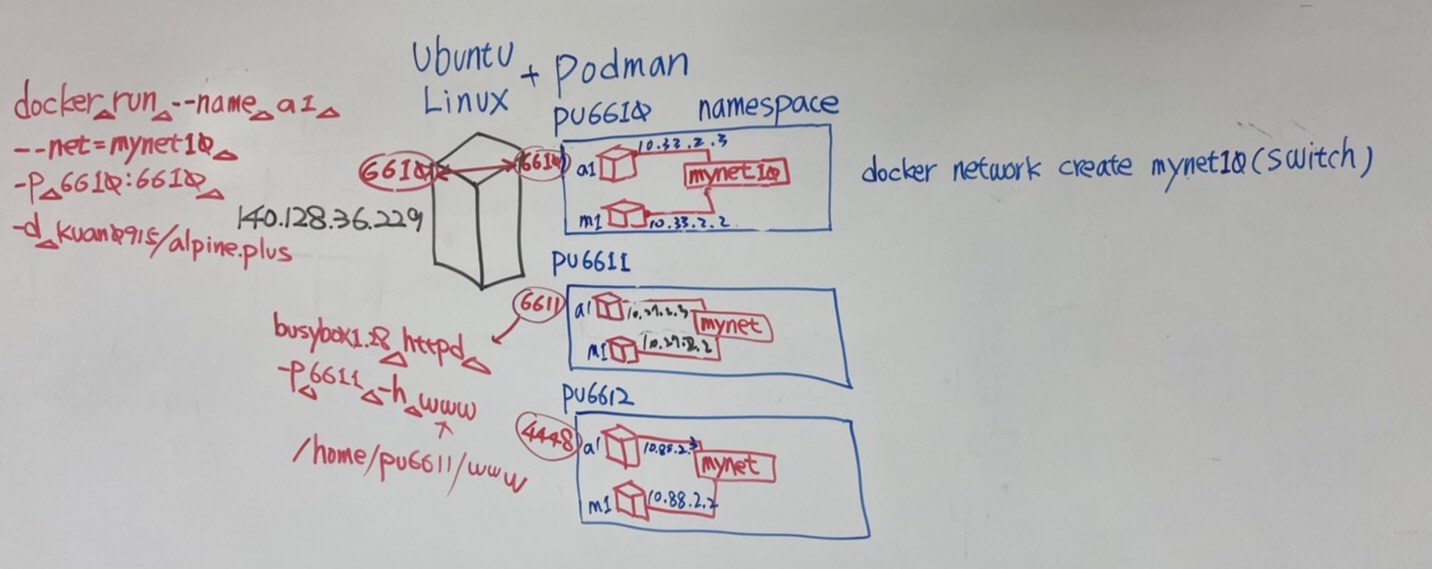 Ubuntu + Podman
Linux
docker run --name a1
--net=mynet10
-p 6610:6610
-d kuan0915/alpine.plus
6610
140.128.36.229
pu6610 namespace
6610
a1
10.33.2.3
mynet10
m1
10.33.2.2
docker network create mynet10(switch)
pu6611
6611
a1
mynet
m1
busybox1.28 httpd
-p 6611 -h www
/home/pu6611/www
pu6612
4448
a1
10.88.2.3
mynet
m1
10.88.2.2